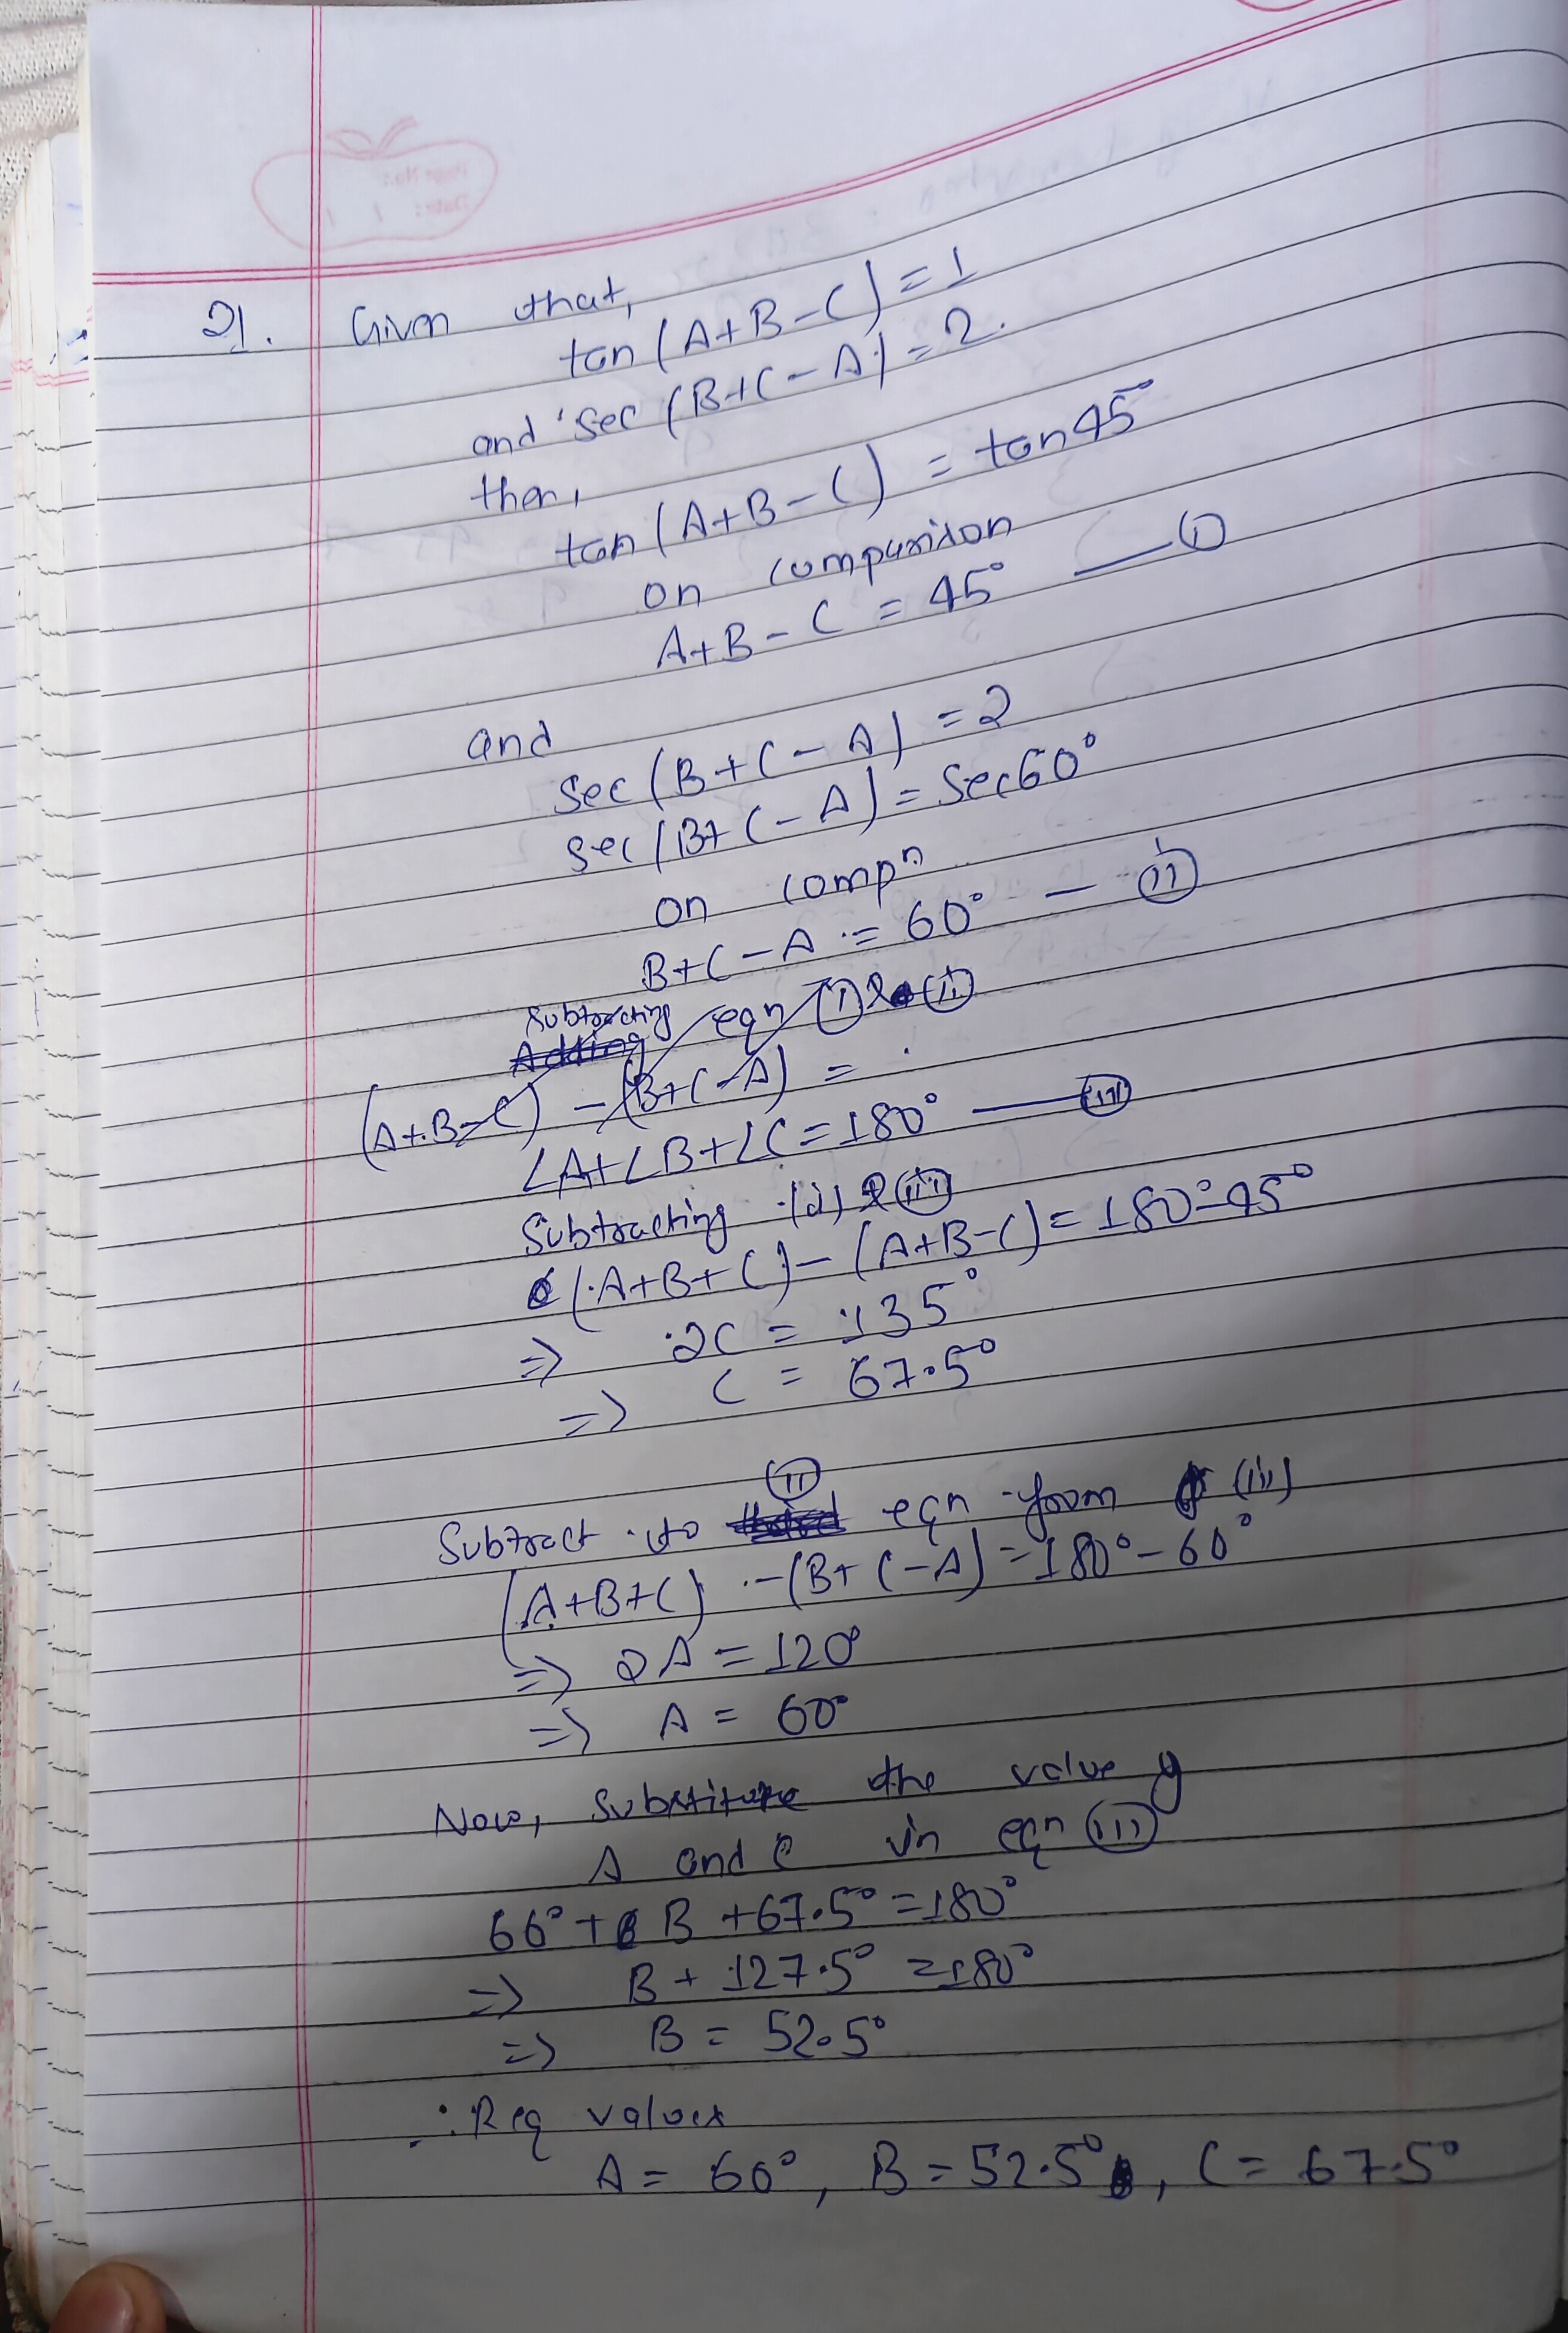 21. Given that,
tan (A+B-C) = 1
and sec (B+C-A) = 2.
then,
tan (A+B-C) = tan 45°
on comparison
A+B-C = 45° — (i)
and
sec (B+C-A) = 2
sec (B+C-A) = sec 60°
on compn
B+C-A = 60° — (ii)
Subtracting eqn (i) & (ii)
Adding
(A+B-C) - (B+C-A) =
∠A+∠B+∠C = 180° — (iii)
Subtracting (i) & (iii)
(A+B+C) - (A+B-C) = 180°-45°
=> 2C = 135°
=> C = 67.5°
(ii)
Subtract eqn from (iii)
(A+B+C) - (B+C-A) = 180°-60°
=> 2A = 120°
=> A = 60°
Now, Substitute the value of
A and C in eqn (iii)
60° + B + 67.5° = 180°
=> B + 127.5° = 180°
=> B = 52.5°
∴ Req values
A = 60°, B = 52.5°, C = 67.5°